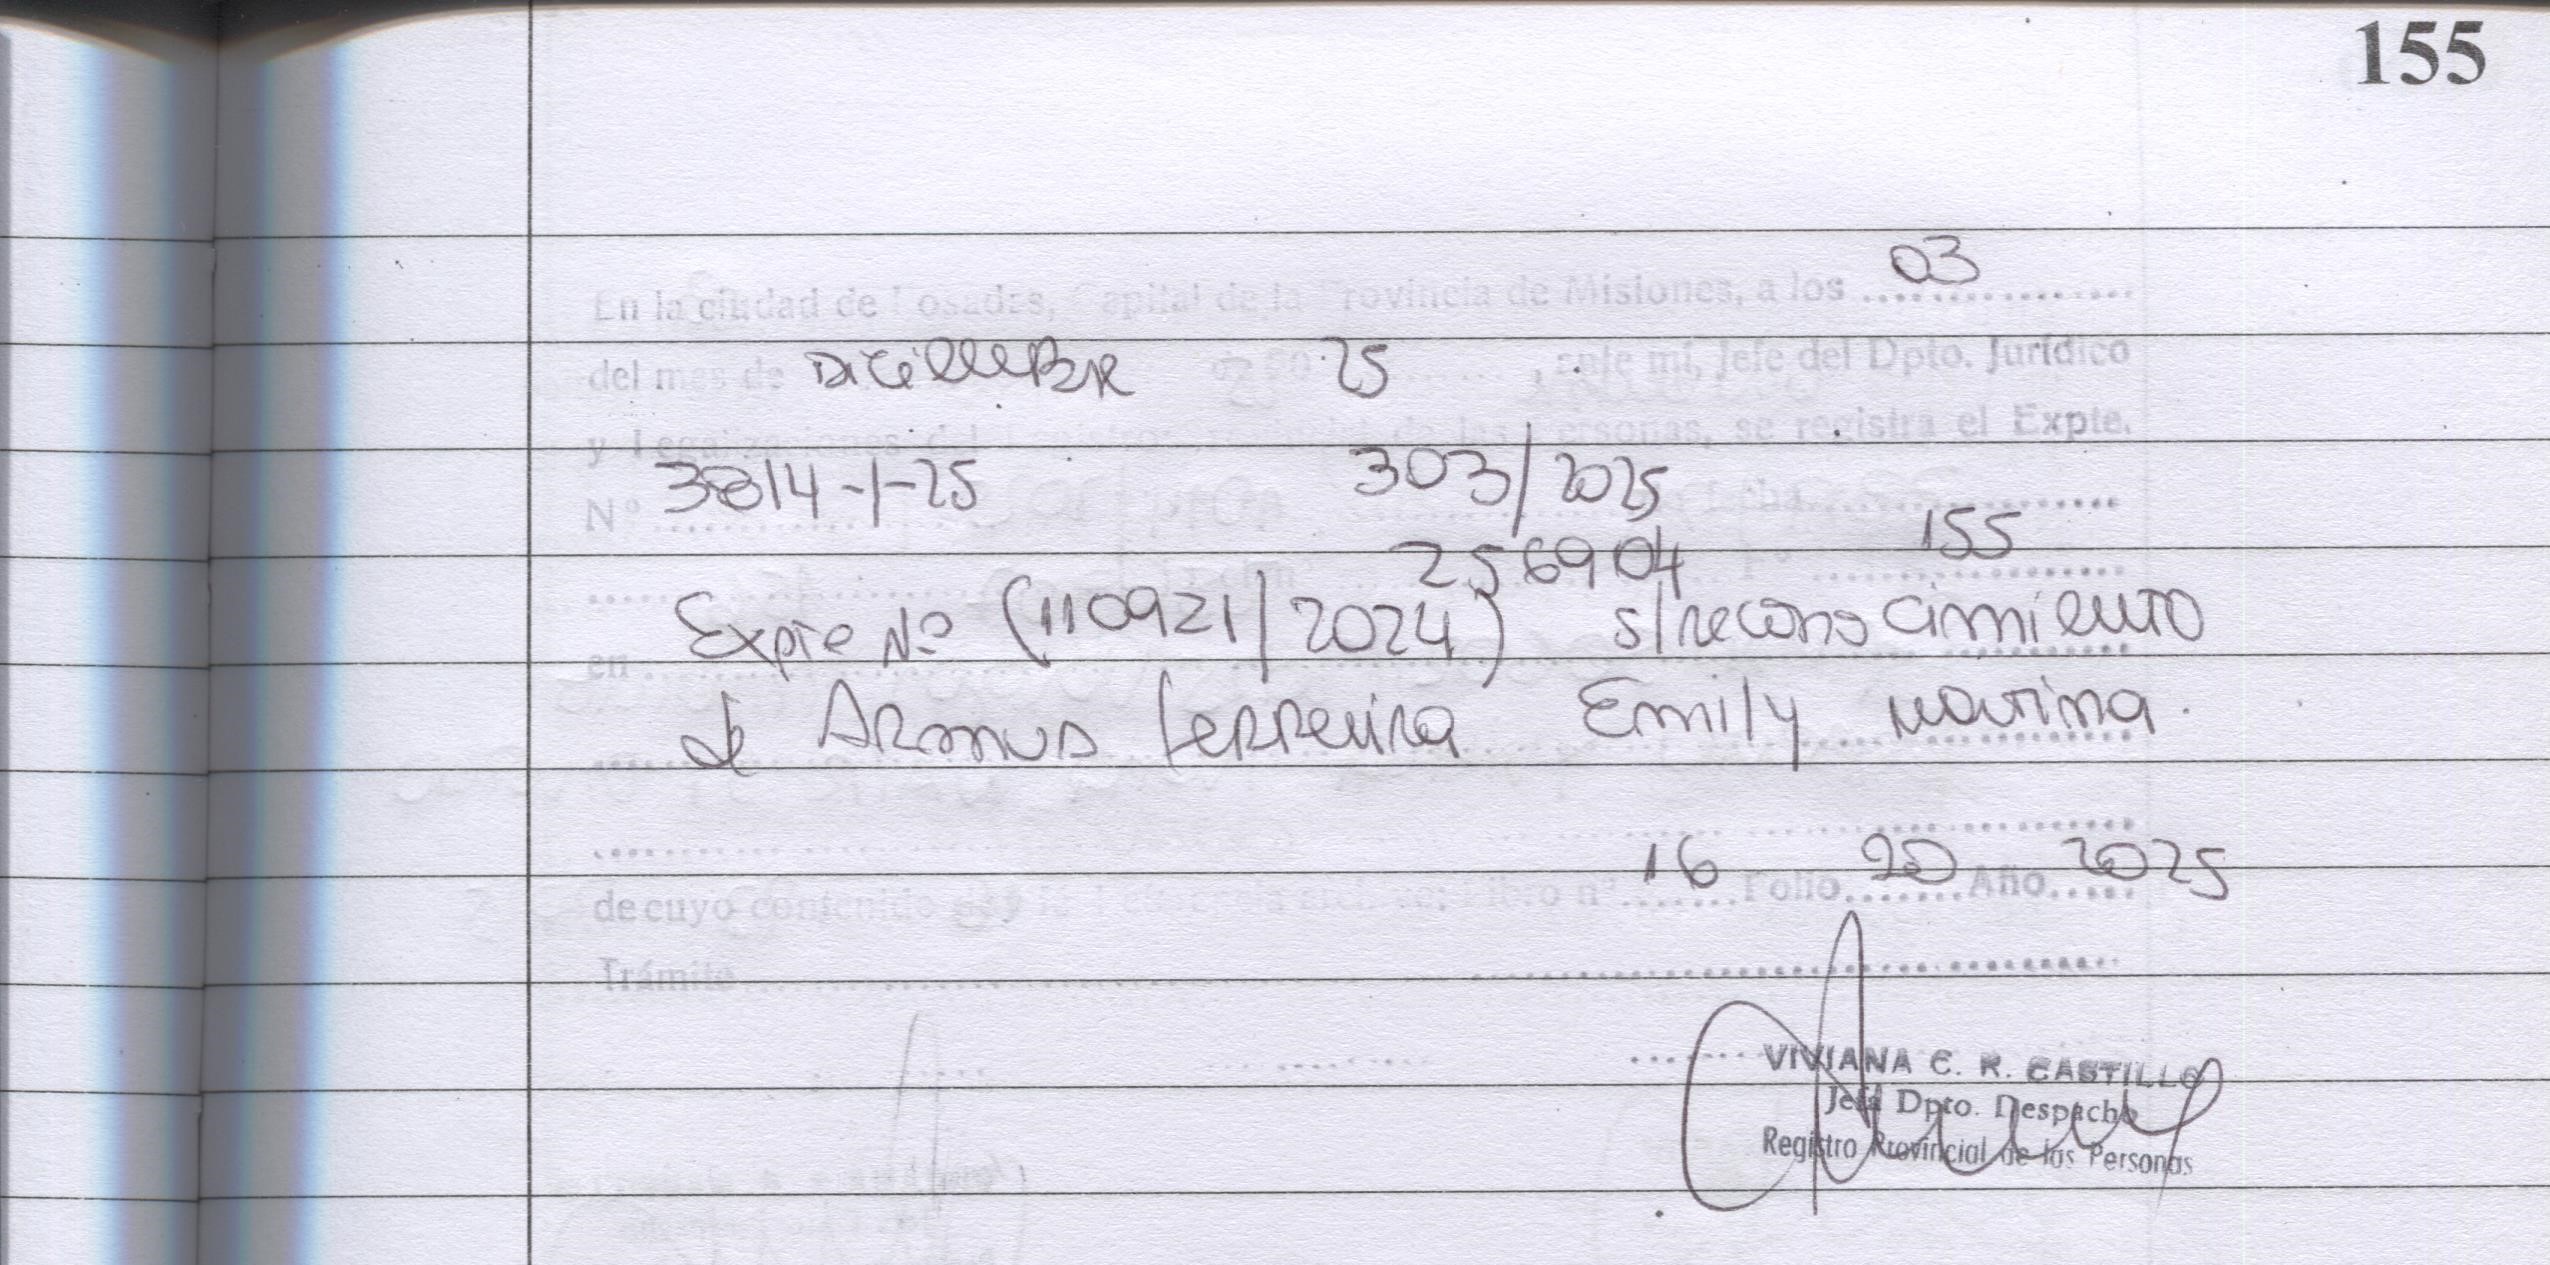 155
03
En la ciudad de Posadas, Capital de la Provincia de Misiones, a los
del mes de DiCiEMBR 25, ante mí, Jefe del Dpto. Jurídico
y Legalizaciones del de las Personas, se registra el Expte.
Nº 3814-1-25 303/2025 fecha
256904 Fº 155
Expte Nº (110921/2024) s/reconocimiento
en
de ARmus ferreira Emily
16 20 2025
de cuyo contenido Libro nº Folio Año
Trámite
VIVIANA C. R. CASTILLO
Jefa Dpto. Despacho
Registro Provincial de las Personas